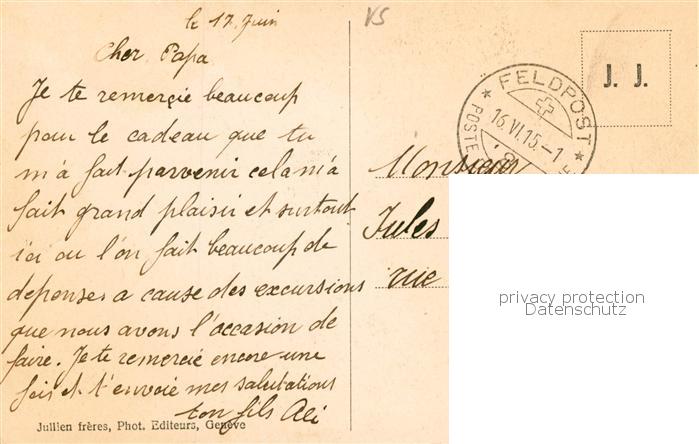 le 17. Juin
VS
Cher Papa
Je te remerçie beaucoup
pour le cadeau que tu
m'a fait parvenir cela m'a
fait grand plaisir et surtout
ici ou l'on fait beaucoup de
depenses a cause des excursions
que nous avons l'occasion de
faire. Je te remercie encore une
fois et t'envoie mes salutations
ton fils Ali
Jullien frères, Phot. Editeurs, Genève
J. J.
★ FELDPOST ★
16.VI.15.-1
POSTE
Monsieur
Jules
rue
privacy protection
Datenschutz